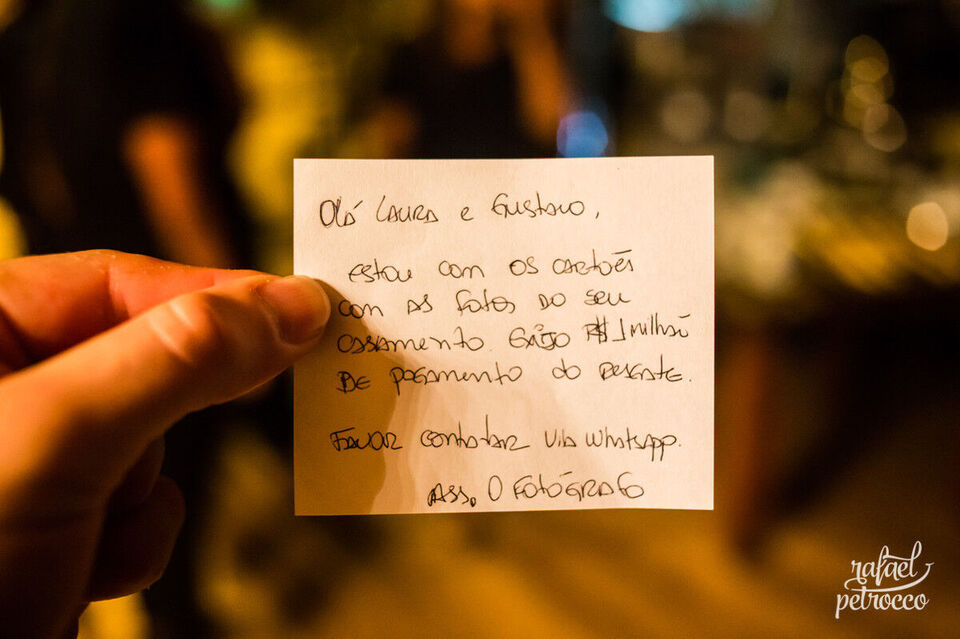 Olá Laura e Gustavo,
Estou com os cartões
com as fotos do seu
casamento. Exijo R$ 1 milhão
de pagamento do resgate.
Favor contatar via WhatsApp.
Ass. O Fotógrafo
rafael
petrocco